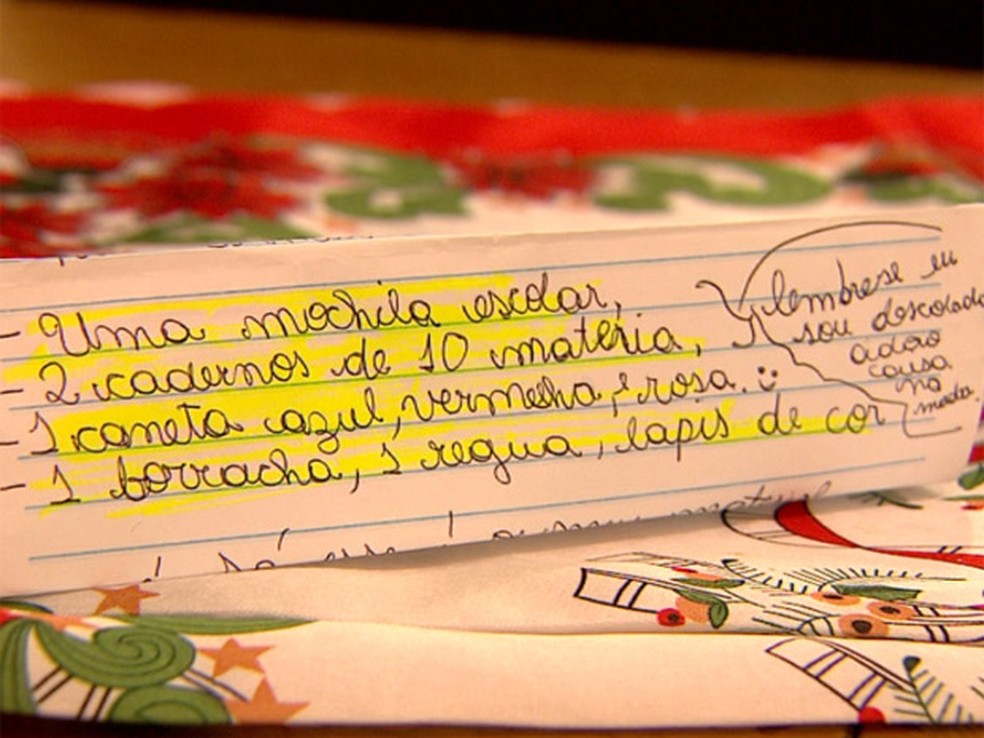 - Uma mochila escolar,
- 2 cadernos de 10 matéria,
- 1 caneta azul, vermelha, e rosa.
- 1 borracha, 1 regua, lapis de cor
lembrese eu
sou descolada
adoro
causa
na
moda.